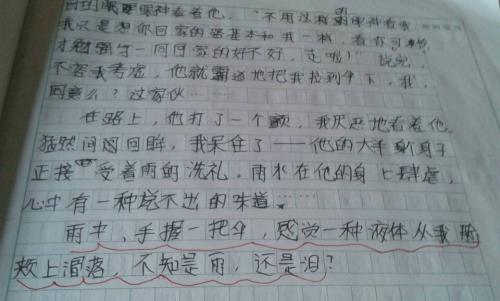 眼神看着他,"不用这样的眼神看我
我只是想你回家的路基本和我一样,看你可怜
才勉强与一同回家的好不好,走啦!"说完,
不容我考虑,他就霸道地把我拉到伞下,我,
同意么?这家伙……
在路上,他打了一个颤,我厌恶地看着他,
猛然间回眸,我呆住了——他的大半身子
正接受着雨的洗礼,雨水在他的身上肆虐,
心中有一种说不出的味道……
雨中,手握一把伞,感觉一种液体从我的
颊上滑落,不知是雨,还是泪?